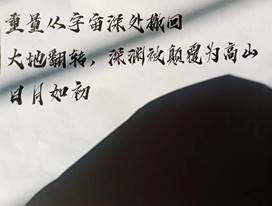 重量从宇宙深处撤回
大地翻转，深渊被颠覆为高山
日月如初